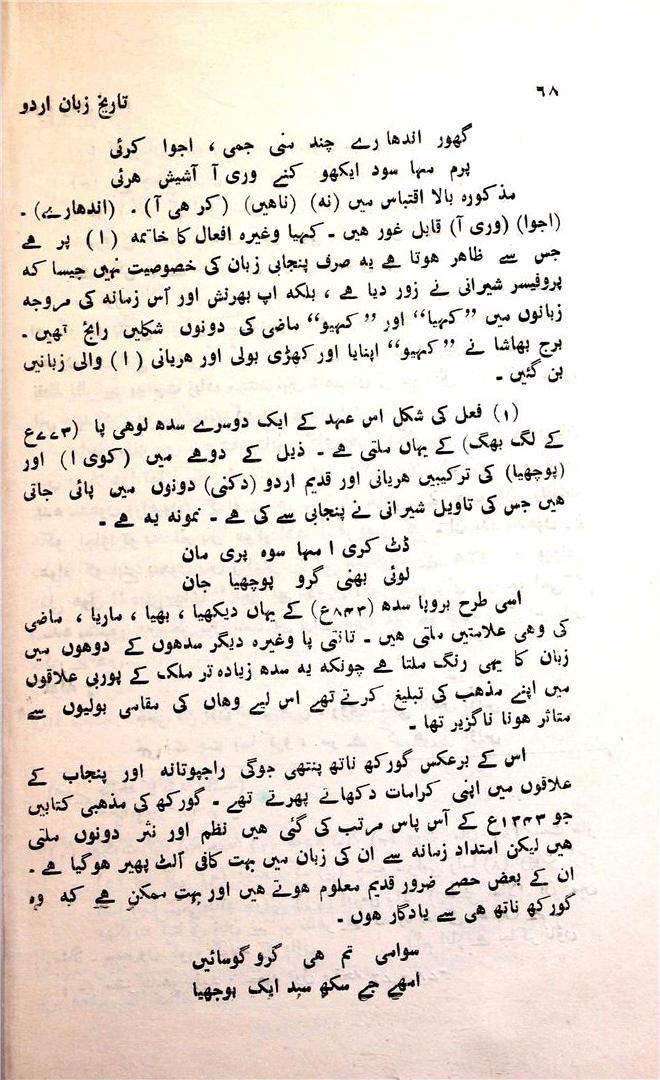 ۶۸
تاریخ زبان اردو
گھور اندھا رے چند منی جمی ، اجوا کرئی
پرم مہا سود ایکھو کنے وری آ آشیش ھرئی
مذکورہ بالا اقتباس میں (نہ) (ناھیں) (کر ھی آ) ۔ (اندھارے) ۔
(اجوا) (وری آ) قابل غور ھیں ۔ کہیا وغیرہ افعال کا خاتمہ (ا) پر ھے
جس سے ظاھر ھوتا ھے یہ صرف پنجابی زبان کی خصوصیت نہیں جیسا کہ
پروفیسر شیرانی نے زور دیا ھے ، بلکہ اپ بھرنش اور اُس زمانہ کی مروجہ
زبانوں میں ”کہیا“ اور ”کہیو“ ماضی کی دونوں شکلیں رائج تھیں ۔
برج بھاشا نے ”کہیو“ اپنایا اور کھڑی بولی اور ھریانی (ا) والی زبانیں
بن گئیں ۔
(۱) فعل کی شکل اس عہد کے ایک دوسرے سدھ لوھی پا (۷۷۳ع
کے لگ بھگ) کے یہاں ملتی ھے ۔ ذیل کے دوھے میں (کوی ا) اور
(پوچھیا) کی ترکیبیں ھریانی اور قدیم اردو (دکنی) دونوں میں پائی جاتی
ھیں جس کی تاویل شیرانی نے پنجابی سے کی ھے ۔ نمونہ یہ ھے ۔
ڈٹ کری ا مہا سوہ پری مان
لوئی بھنی گرو پوچھیا جان
اسی طرح بروپا سدھ (۸۴۳ع) کے یہاں دیکھیا ، بھیا ، ماریا ، ماضی
کی وھی علامتیں ملتی ھیں ۔ تانتی پا وغیرہ دیگر سدھوں کے دوھوں میں
زبان کا یہی رنگ ملتا ھے چونکہ یہ سدھ زیادہ تر ملک کے پوربی علاقوں
میں اپنے مذھب کی تبلیغ کرتے تھے اس لیے وھاں کی مقامی بولیوں سے
متاثر ھونا ناگزیر تھا ۔
اس کے برعکس گورکھ ناتھ پنتھی جوگی راجپوتانہ اور پنجاب کے
علاقوں میں اپنی کرامات دکھاتے پھرتے تھے ۔ گورکھ کی مذھبی کتابیں
جو ۱۳۴۳ع کے آس پاس مرتب کی گئی ھیں نظم اور نثر دونوں ملتی
ھیں لیکن امتداد زمانہ سے ان کی زبان میں بہت کافی اُلٹ پھیر ھوگیا ھے ۔
ان کے بعض حصے ضرور قدیم معلوم ھوتے ھیں اور بہت ممکن ھے کہ وہ
گورکھ ناتھ ھی سے یادگار ھوں ۔
سوامی تم ھی گرو گوسائیں
امھے جے سکھ سبد ایک بوجھیا